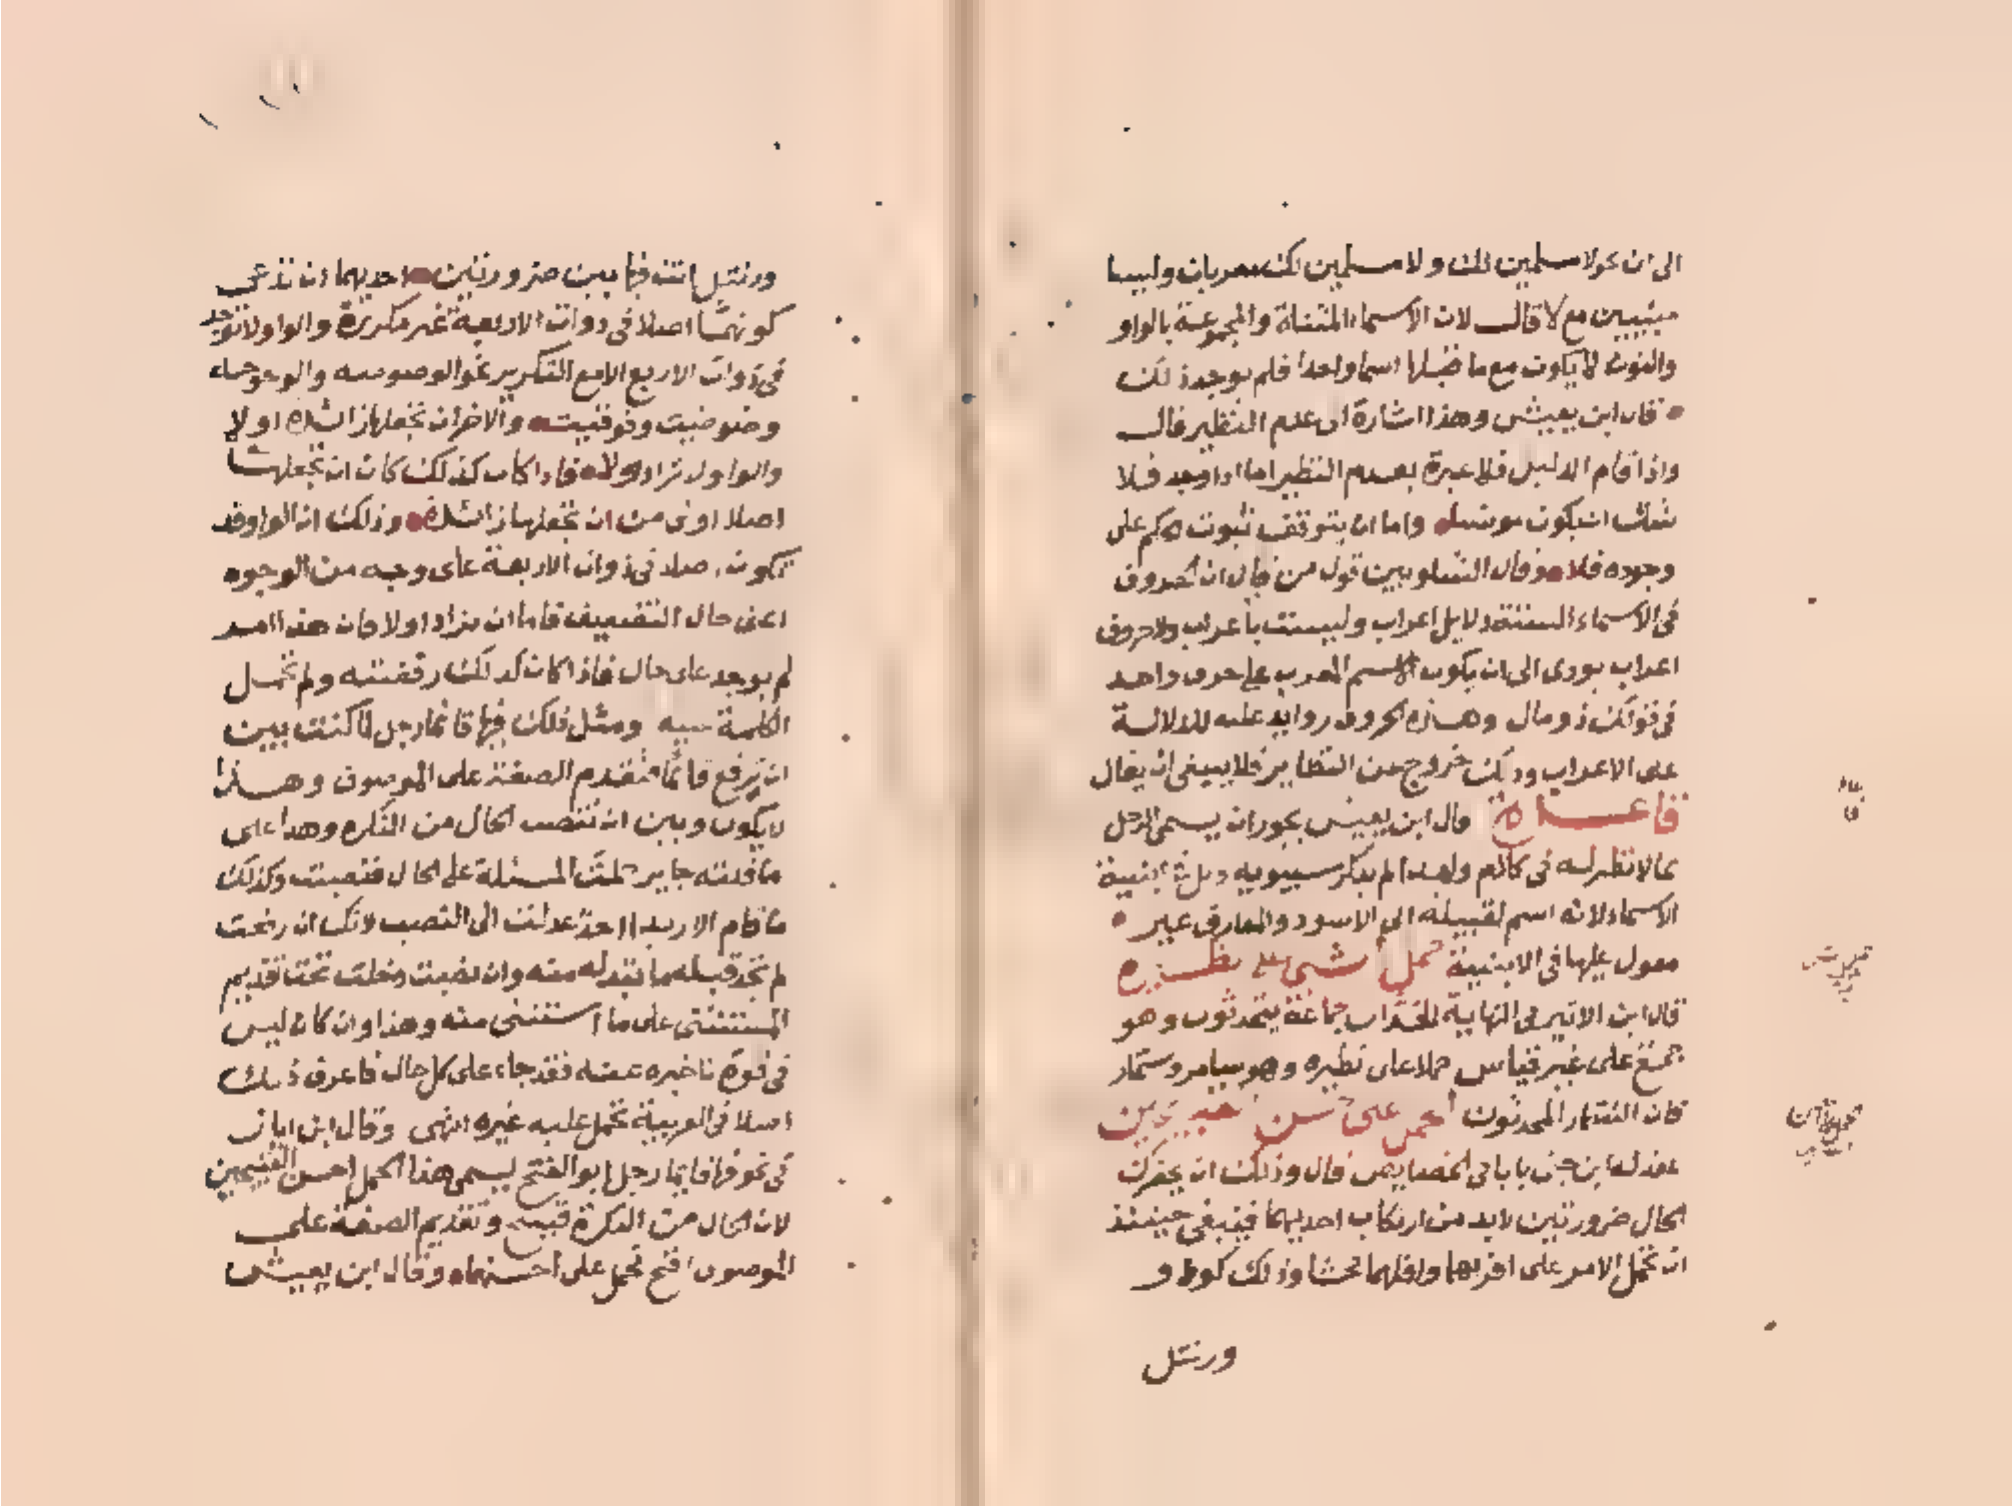 الى ان نحو لا مسلمين لك ولا مسلمين لك معربان وليسا
مبنيين مع لا قال لان الاسماء المثناة والمجموعة بالواو
والنون لا يكون مع ما قبلها اسما واحدا فلم يوجد ذلك
قال ابن يعيش وهذا اشارة الى عدم النظير قال
واذا قام الدليل فلا عبرة بعدم النظير اما اذا وجد فلا
شك انه يكون مونسا واما ان يتوقف ثبوت الحكم على
وجوده فلا وقال الشلوبين قول من قال ان الحروف
في الاسماء الستة دلايل اعراب وليست باعراب ولا حروف
اعراب يودى الى ان يكون الاسم المعرب على حرف واحد
في قولك ذو مال وهذه الحروف زوايد عليه للدلالة
على الاعراب وذلك خروج عن النظاير فلا ينبغى ان يقال
قاعدة قال ابن يعيش يجوز ان يسمى الرجل
بما لا نظير له في كلامهم ولهذا لم يذكر سيبويه دئل في ابنية
الاسماء لانه اسم لقبيلة ابي الاسود والمعارف غير
معول عليها في الابنية حمل الشي على نظيره
قال ابن الاثير في النهاية الحداث جماعة يتحدثون وهو
جمع على غير قياس حملا على نظيره وهو سامر وسمار
فان السمار المحدثون الحمل على احسن القبيحين
عقد له ابن جنى بابا في الخصايص قال وذلك ان يحضرك
الحال ضرورتين لابد من ارتكاب احديهما فينبغى حينئذ
ان تحمل الامر على اقربهما واقلهما فحشا وذلك كواو
ورنتل
ورنتل انت فيها بين ضرورتين احديهما ان تدعى
كونها اصلا في ذوات الاربعة غير مكررة والواو لا توجد
في ذوات الاربع الا مع التكرير نحو الوصوصة والوحوحة
وضوضيت وقوقيت والاخر ان تجعلها زائدة اولا
والواو لا تزاد اولا فاذا كان كذلك كان ان تجعلها
اصلا اولى من ان تجعلها زائدة وذلك ان الواو قد
تكون اصلا في ذوات الاربعة على وجه من الوجوه
اعنى حال التضعيف فاما ان تزاد اولا فان هذا امر
لم يوجد على حال فاذا كان كذلك رفضته ولم تحمل
الكلمة عليه ومثل ذلك فيها قائما رجل لما كنت بين
ان ترفع قائما فتقدم الصفة على الموصوف وهذا
لا يكون وبين ان تنصب الحال من النكرة وهذا على
ما قلته جايز حملت المسئلة على الحال فنصبت وكذلك
ما قام الا زيدا احد عدلت الى النصب لانك ان رفعت
لم تجد قبله ما تبدله منه وان نصبت دخلت تحت تقديم
المستثنى على ما استثنى منه وهذا وان كان ليس
في قوة تاخيره عنه فقد جاء على كل حال فاعرف ذلك
اصلا في العربية تحمل عليه غيره انتهى وقال ابن اياز
في نحو فيها قايما رجل ابو الفتح يسمى هذا الحمل احسن القبيحين
لان الحال من النكرة قبيح وتقديم الصفة على
الموصوف اقبح فحمل على احسنهما وقال ابن يعيش